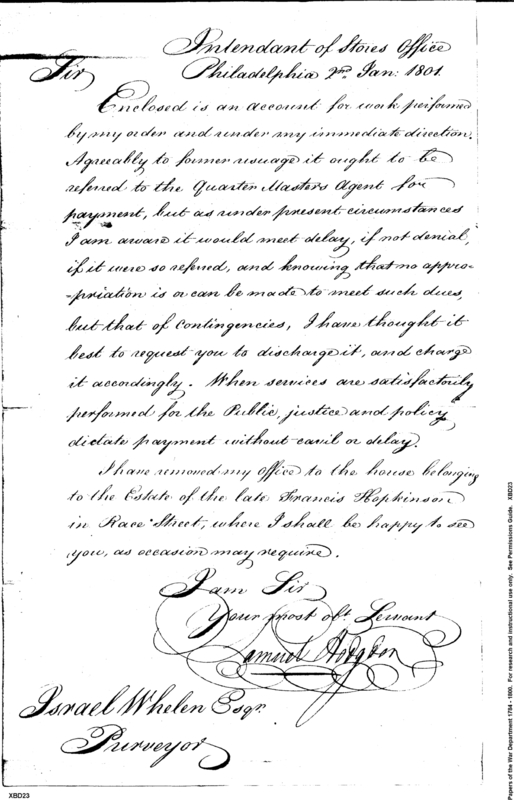 Intendant of Stores Office
Sir
Philadelphia 2nd Jan: 1801.
Enclosed is an account for work performed
by my order and under my immediate direction.
Agreeably to former usuage it ought to be
referred to the Quarter Masters Agent for
payment, but as under present circumstances
I am aware it would meet delay, if not denial,
if it were so referred, and knowing that no appro-
-priation is or can be made to meet such dues,
but that of Contingencies, I have thought it
best to request you to discharge it, and charge
it accordingly. When services are satisfactorily
performed for the Public, justice and policy
dictate payment without cavil or delay.
I have removed my Office to the house belonging
to the Estate of the late Francis Hopkinson
in Race Street, where I shall be happy to see
you, as occasion may require.
I am Sir
Your most obt. Servant
Samuel Hodgdon
Israel Whelen Esqr.
Purveyor
XBD23
Papers of the War Department 1784 - 1800. For research and instructional use only. See Permissions Guide. XBD23